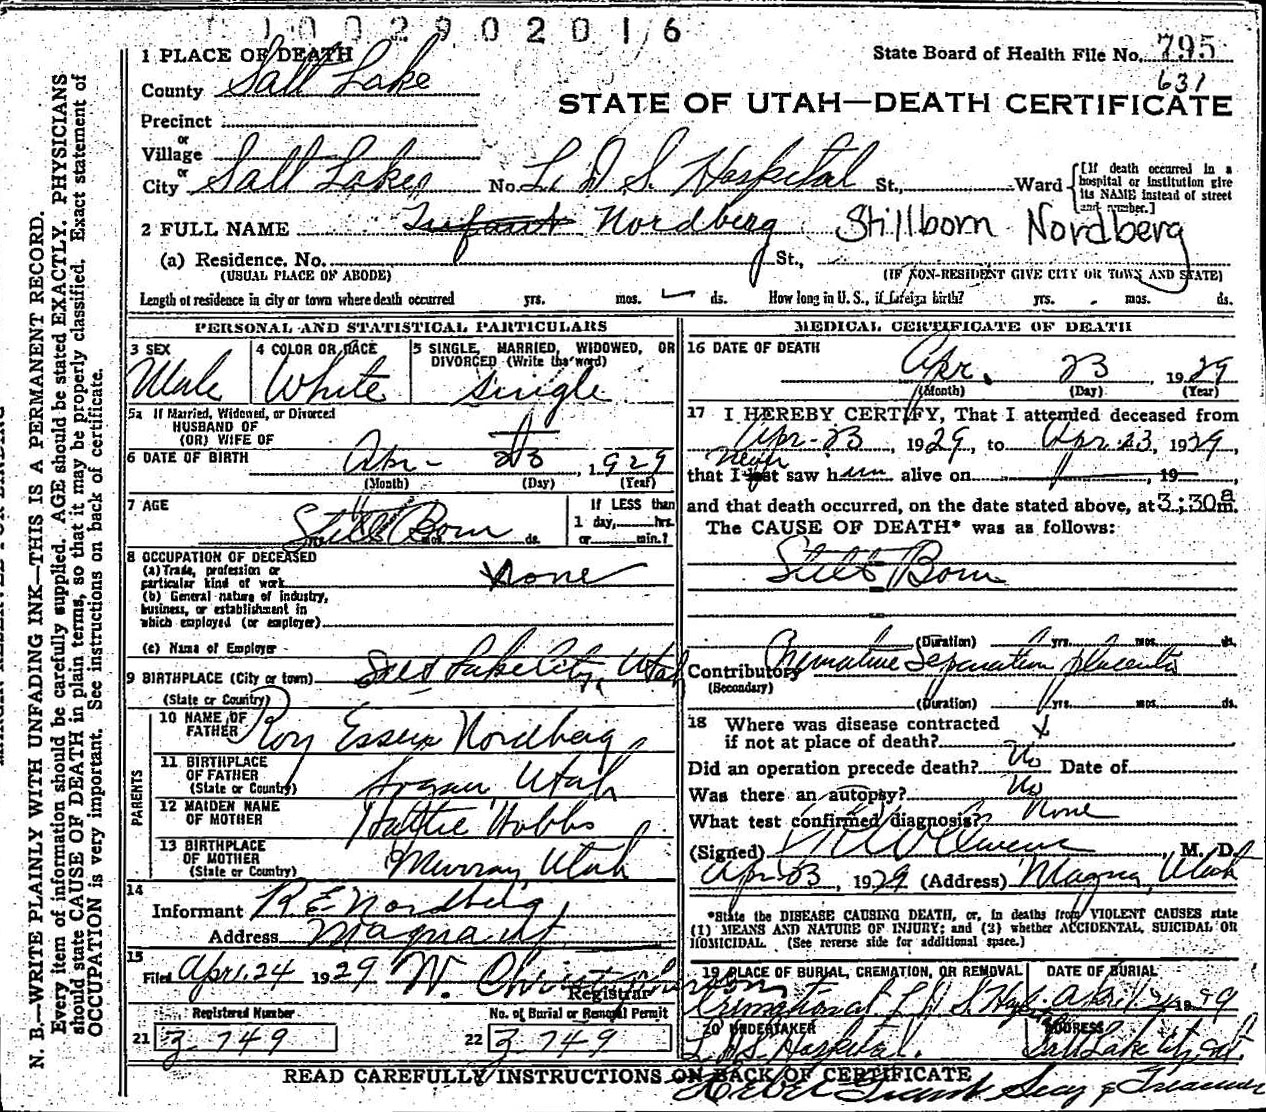 1002902016
State Board of Health File No. 795
631
STATE OF UTAH—DEATH CERTIFICATE
1 PLACE OF DEATH
County Salt Lake
Precinct
or
Village
or
City Salt Lake No. L. D. S. Hospital St., Ward
[If death occurred in a hospital or institution give its NAME instead of street and number.]
2 FULL NAME Infant Nordberg Stillborn Nordberg
(a) Residence, No. St.,
(USUAL PLACE OF ABODE) (IF NON-RESIDENT GIVE CITY OR TOWN AND STATE)
Length of residence in city or town where death occurred yrs. mos. ds. How long in U. S., if foreign birth? yrs. mos. ds.
PERSONAL AND STATISTICAL PARTICULARS
3 SEX
Male
4 COLOR OR RACE
White
5 SINGLE, MARRIED, WIDOWED, OR DIVORCED (Write the word)
Single
5a If Married, Widowed, or Divorced
HUSBAND OF
(OR) WIFE OF
6 DATE OF BIRTH Apr- 23, 1929
(Month) (Day) (Year)
7 AGE
Still Born
mos. ds.
If LESS than
1 day, hrs.
or min.?
8 OCCUPATION OF DECEASED
(a) Trade, profession or
particular kind of work none
(b) General nature of industry,
business, or establishment in
which employed (or employer)
(c) Name of Employer
9 BIRTHPLACE (City or town) Salt Lake City, Utah
(State or Country)
PARENTS
10 NAME OF FATHER Roy Essex Nordberg
11 BIRTHPLACE OF FATHER Logan, Utah
(State or Country)
12 MAIDEN NAME OF MOTHER Hattie Hobbs
13 BIRTHPLACE OF MOTHER Murray, Utah
(State or Country)
14
Informant R E Nordberg
Address Magna ut.
15
Filed Apr. 24 1929 W. Christopherson
Registrar
Registered Number
21 3749
No. of Burial or Removal Permit
22 3749
MEDICAL CERTIFICATE OF DEATH
16 DATE OF DEATH
Apr. 23, 1929
(Month) (Day) (Year)
17 I HEREBY CERTIFY, That I attended deceased from
Apr-23 1929, to Apr. 23, 1929,
never
that I last saw him alive on , 19 ,
and that death occurred, on the date stated above, at 3:30 a m.
The CAUSE OF DEATH* was as follows:
Still Born
(Duration) yrs. mos. ds.
Contributory Premature Separation placenta
(Secondary)
(Duration) yrs. mos. ds.
18 Where was disease contracted
if not at place of death?
Did an operation precede death? No Date of
Was there an autopsy? No
What test confirmed diagnosis? None
(Signed) , M. D.
Apr 23, 1929 (Address) Magna, Utah
*State the DISEASE CAUSING DEATH, or, in deaths from VIOLENT CAUSES state
(1) MEANS AND NATURE OF INJURY; and (2) whether ACCIDENTAL, SUICIDAL OR
HOMICIDAL. (See reverse side for additional space.)
19 PLACE OF BURIAL, CREMATION, OR REMOVAL
L D S Hosp.
DATE OF BURIAL
April 24 1929
20 UNDERTAKER
L. D. S. Hospital.
ADDRESS
Salt Lake City, Ut.
READ CAREFULLY INSTRUCTIONS ON BACK OF CERTIFICATE
Heber Grant Secy & Treasurer
N. B.—WRITE PLAINLY WITH UNFADING INK—THIS IS A PERMANENT RECORD.
Every item of information should be carefully supplied. AGE should be stated EXACTLY. PHYSICIANS
should state CAUSE OF DEATH in plain terms, so that it may be properly classified. Exact statement of
OCCUPATION is very important. See instructions on back of certificate.